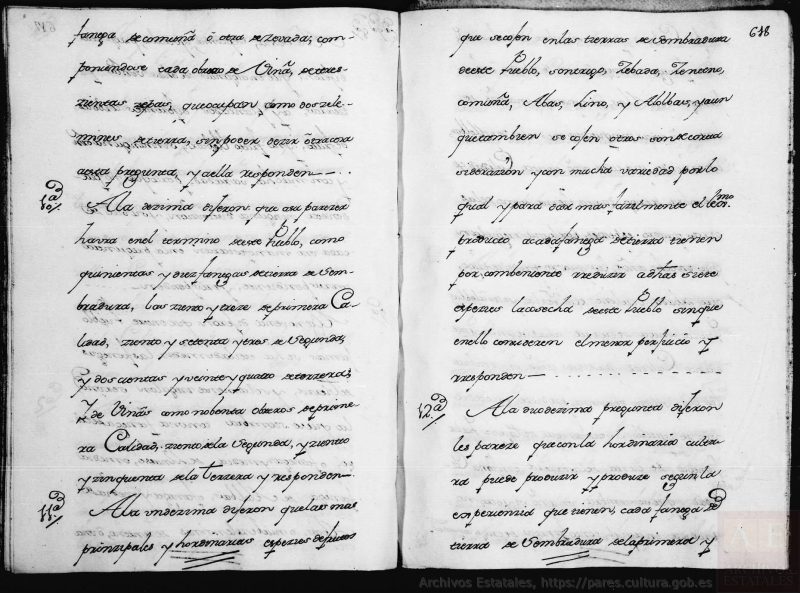 fanega de comuña ó otra de zevada, com
poniendose cada obrero de Viña, de tres-
zientas zepas, que ocupan como dos zele-
mines de tierra, sin poder dezir otra cosa
a esta pregunta, y a ella responden
10ª
A la dezima dijeron que a su parezer
havra en el termino de este Pueblo, como
quinientas y diez fanegas de tierra de Sem-
bradura, las ziento y treze de primera Ca-
lidad, ziento y setenta y tres de Segunda,
y doscientas y veinte y quatro de terzera,
Y de Viñas como nobenta obreros de prime-
ra Calidad, ziento de la Segunda, y ziento
y zinquenta de la terzera y responden
11ª
A la undezima dijeron que las mas
prinzipales y hordinarias espezies de frutos
648
que se cojen en las tierras de Sembradura
de este Pueblo, son trigo, Zebada, Zenteno,
comuña, Abas, Lino, y Alolbas, y aun
que tambien se cojen otros son de corta
siderazión y con mucha variedad por lo
qual y para dar mas fazilmente el lexmo.
produzto a cada fanega de tierra tienen
por combeniente reduzir a dhas siete
espezies la cosecha de este Pueblo sin que
en ello consideren el menor perjuicio y
responden
12ª
A la duodezima pregunta dijeron
les pareze que con la hordinaria cultu-
ra puede produzir y produze segun la
experienzia que tienen, cada fanega de
tierra de Sembradura de la primera y
Archivos Estatales, https://pares.cultura.gob.es
AE
ARCHIVOS
ESTATALES